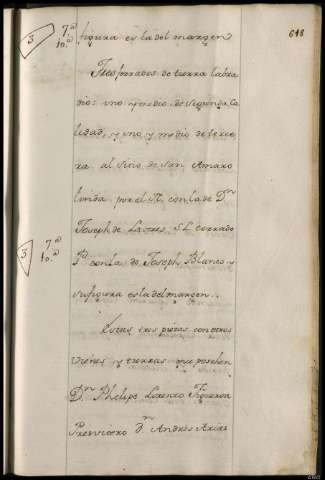 618
3 7.ª
10.ª
figura es la del margen
Tres ferrados de tierra labra
dio: uno y medio de segunda ca
lidad, y uno y medio de terce
ra al sitio de san Amaro
linda por el N. con la de D.ⁿ
Joseph de Lastres S. L. cerrado
3 7.ª
10.ª
P.te con la de Joseph Blanco y
su figura es la del margen..
Estas tres piezas con otros
vienes y tierras que posehen
D.ⁿ Phelipe Lorenzo Figueroa
Presvitero D.ⁿ Andrés Arias